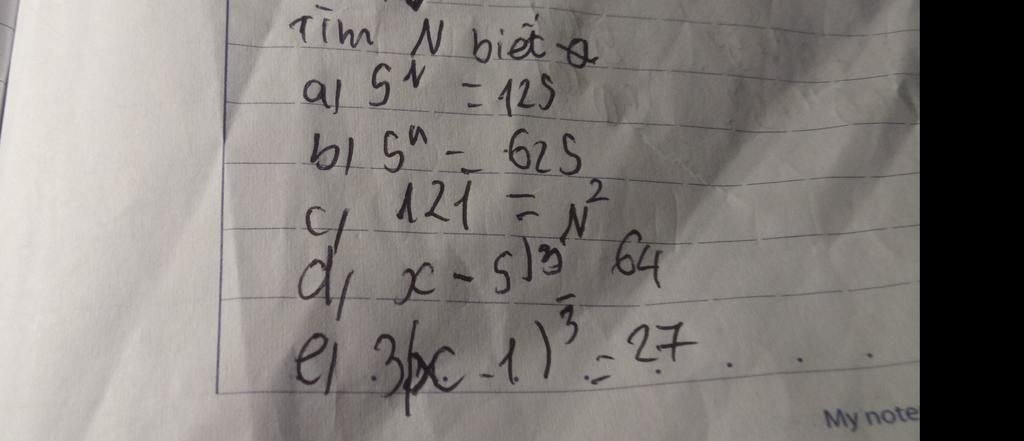 Tìm N biết
a) 5^N = 125
b) 5^n = 625
c) 121 = N^2
d) x - 5)^3 = 64
e) 3(x - 1)^3 = 27
My note